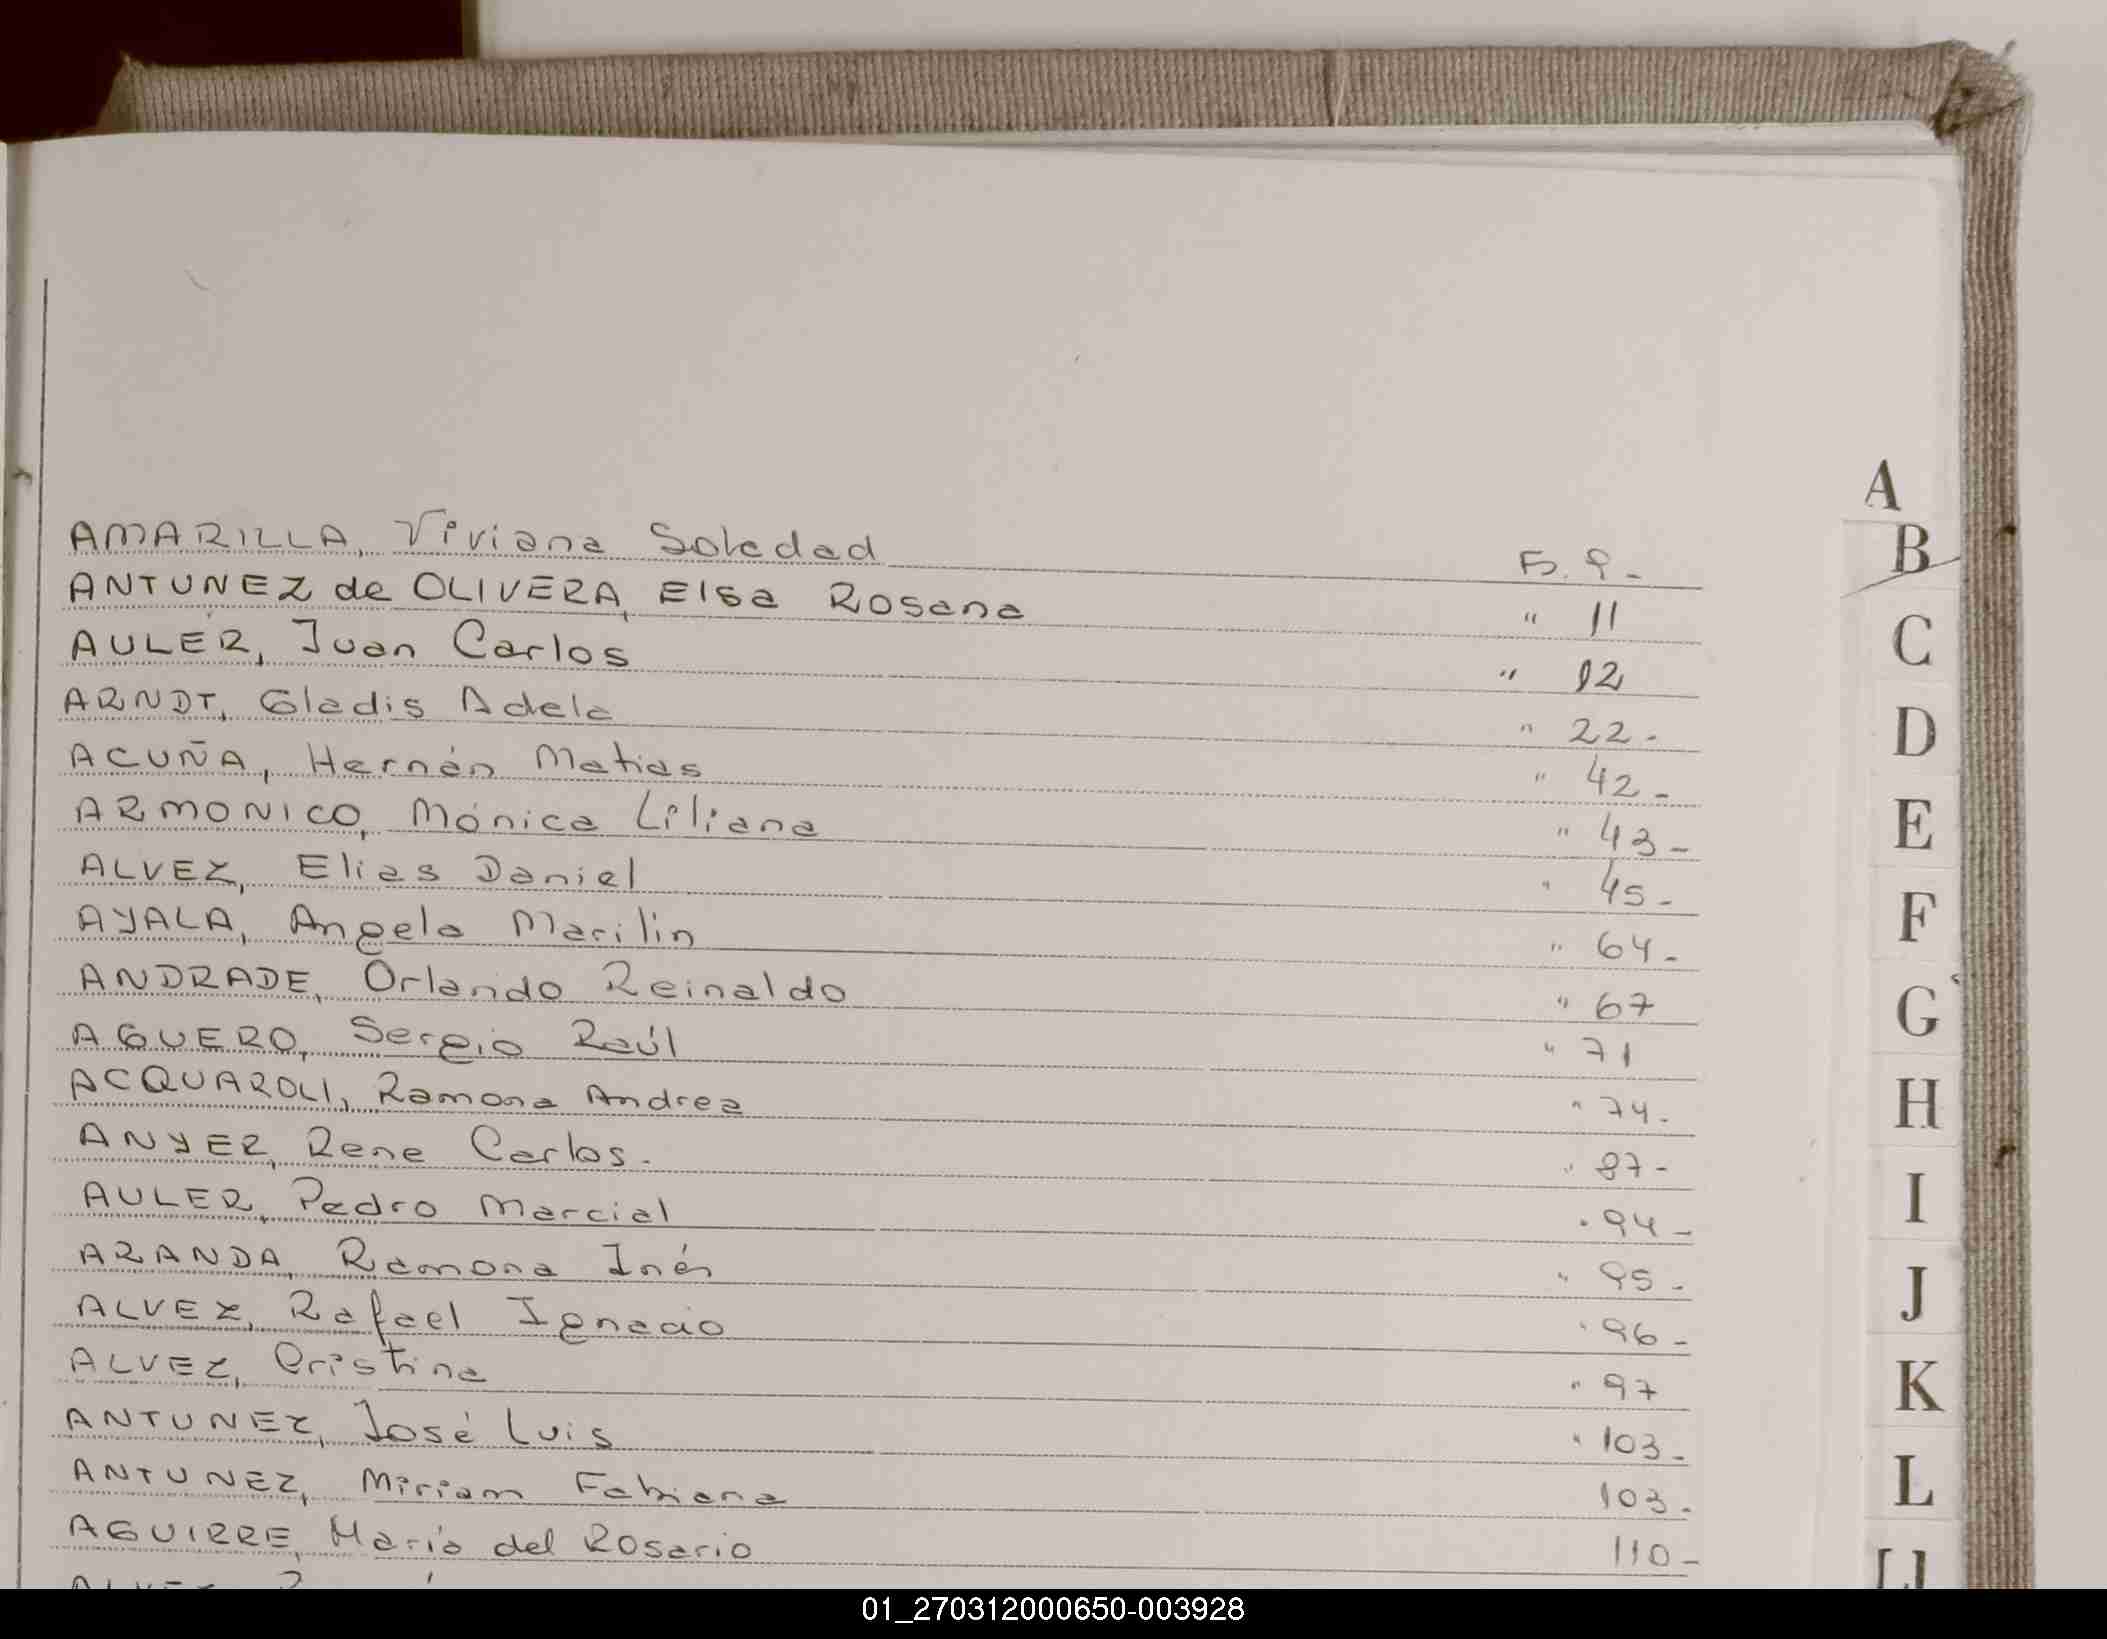 A
AMARILLA, Viviana Soledad F. 9-
B
ANTUNEZ de OLIVERA, Elsa Rosana " 11
AULER, Juan Carlos " 12
C
ARNDT, Gladis Adela " 22-
D
ACUÑA, Hernán Matias " 42-
ARMONICO, Mónica Liliana " 43-
E
ALVEZ, Elias Daniel " 45-
AYALA, Angela Marilin " 64-
F
ANDRADE, Orlando Reinaldo " 67
G
AGUERO, Sergio Raúl " 71
ACQUAROLI, Ramona Andrea " 74-
H
ANYER, Rene Carlos. " 87-
AULER, Pedro Marcial " 94-
I
ARANDA, Ramona Inés " 95-
J
ALVEZ, Rafael Ignacio " 96-
ALVEZ, Cristina " 97
K
ANTUNEZ, José Luis " 103-
ANTUNEZ, Miriam Fabiana 103-
L
AGUIRRE, María del Rosario 110-
01_270312000650-003928